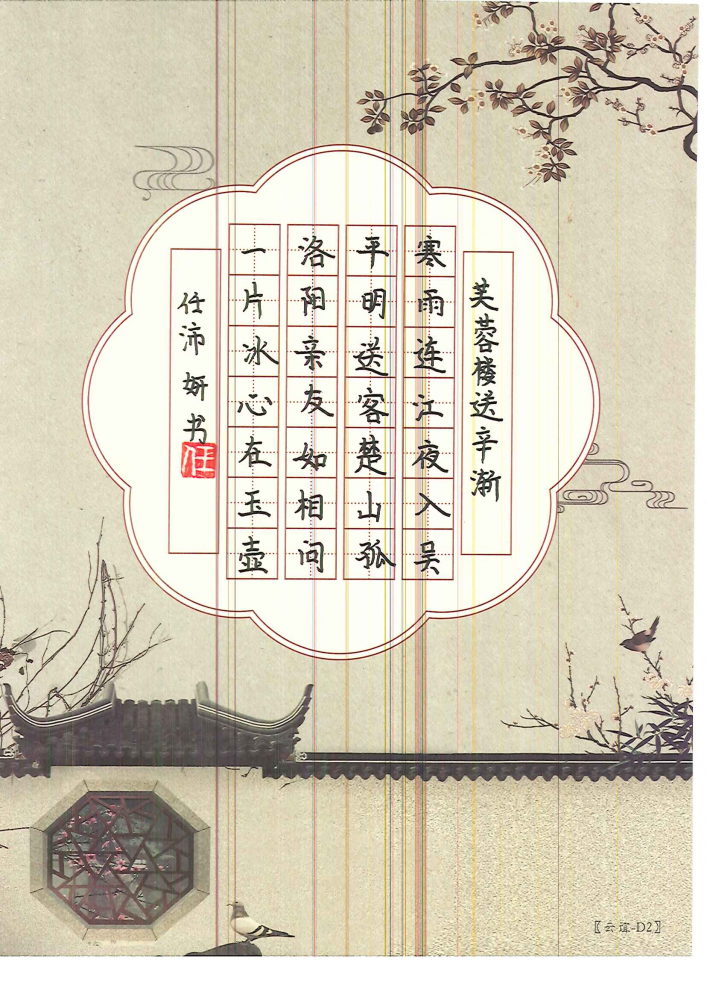 芙蓉楼送辛渐
寒雨连江夜入吴
平明送客楚山孤
洛阳亲友如相问
一片冰心在玉壶
任沛妍书
任
〖云谊-D2〗